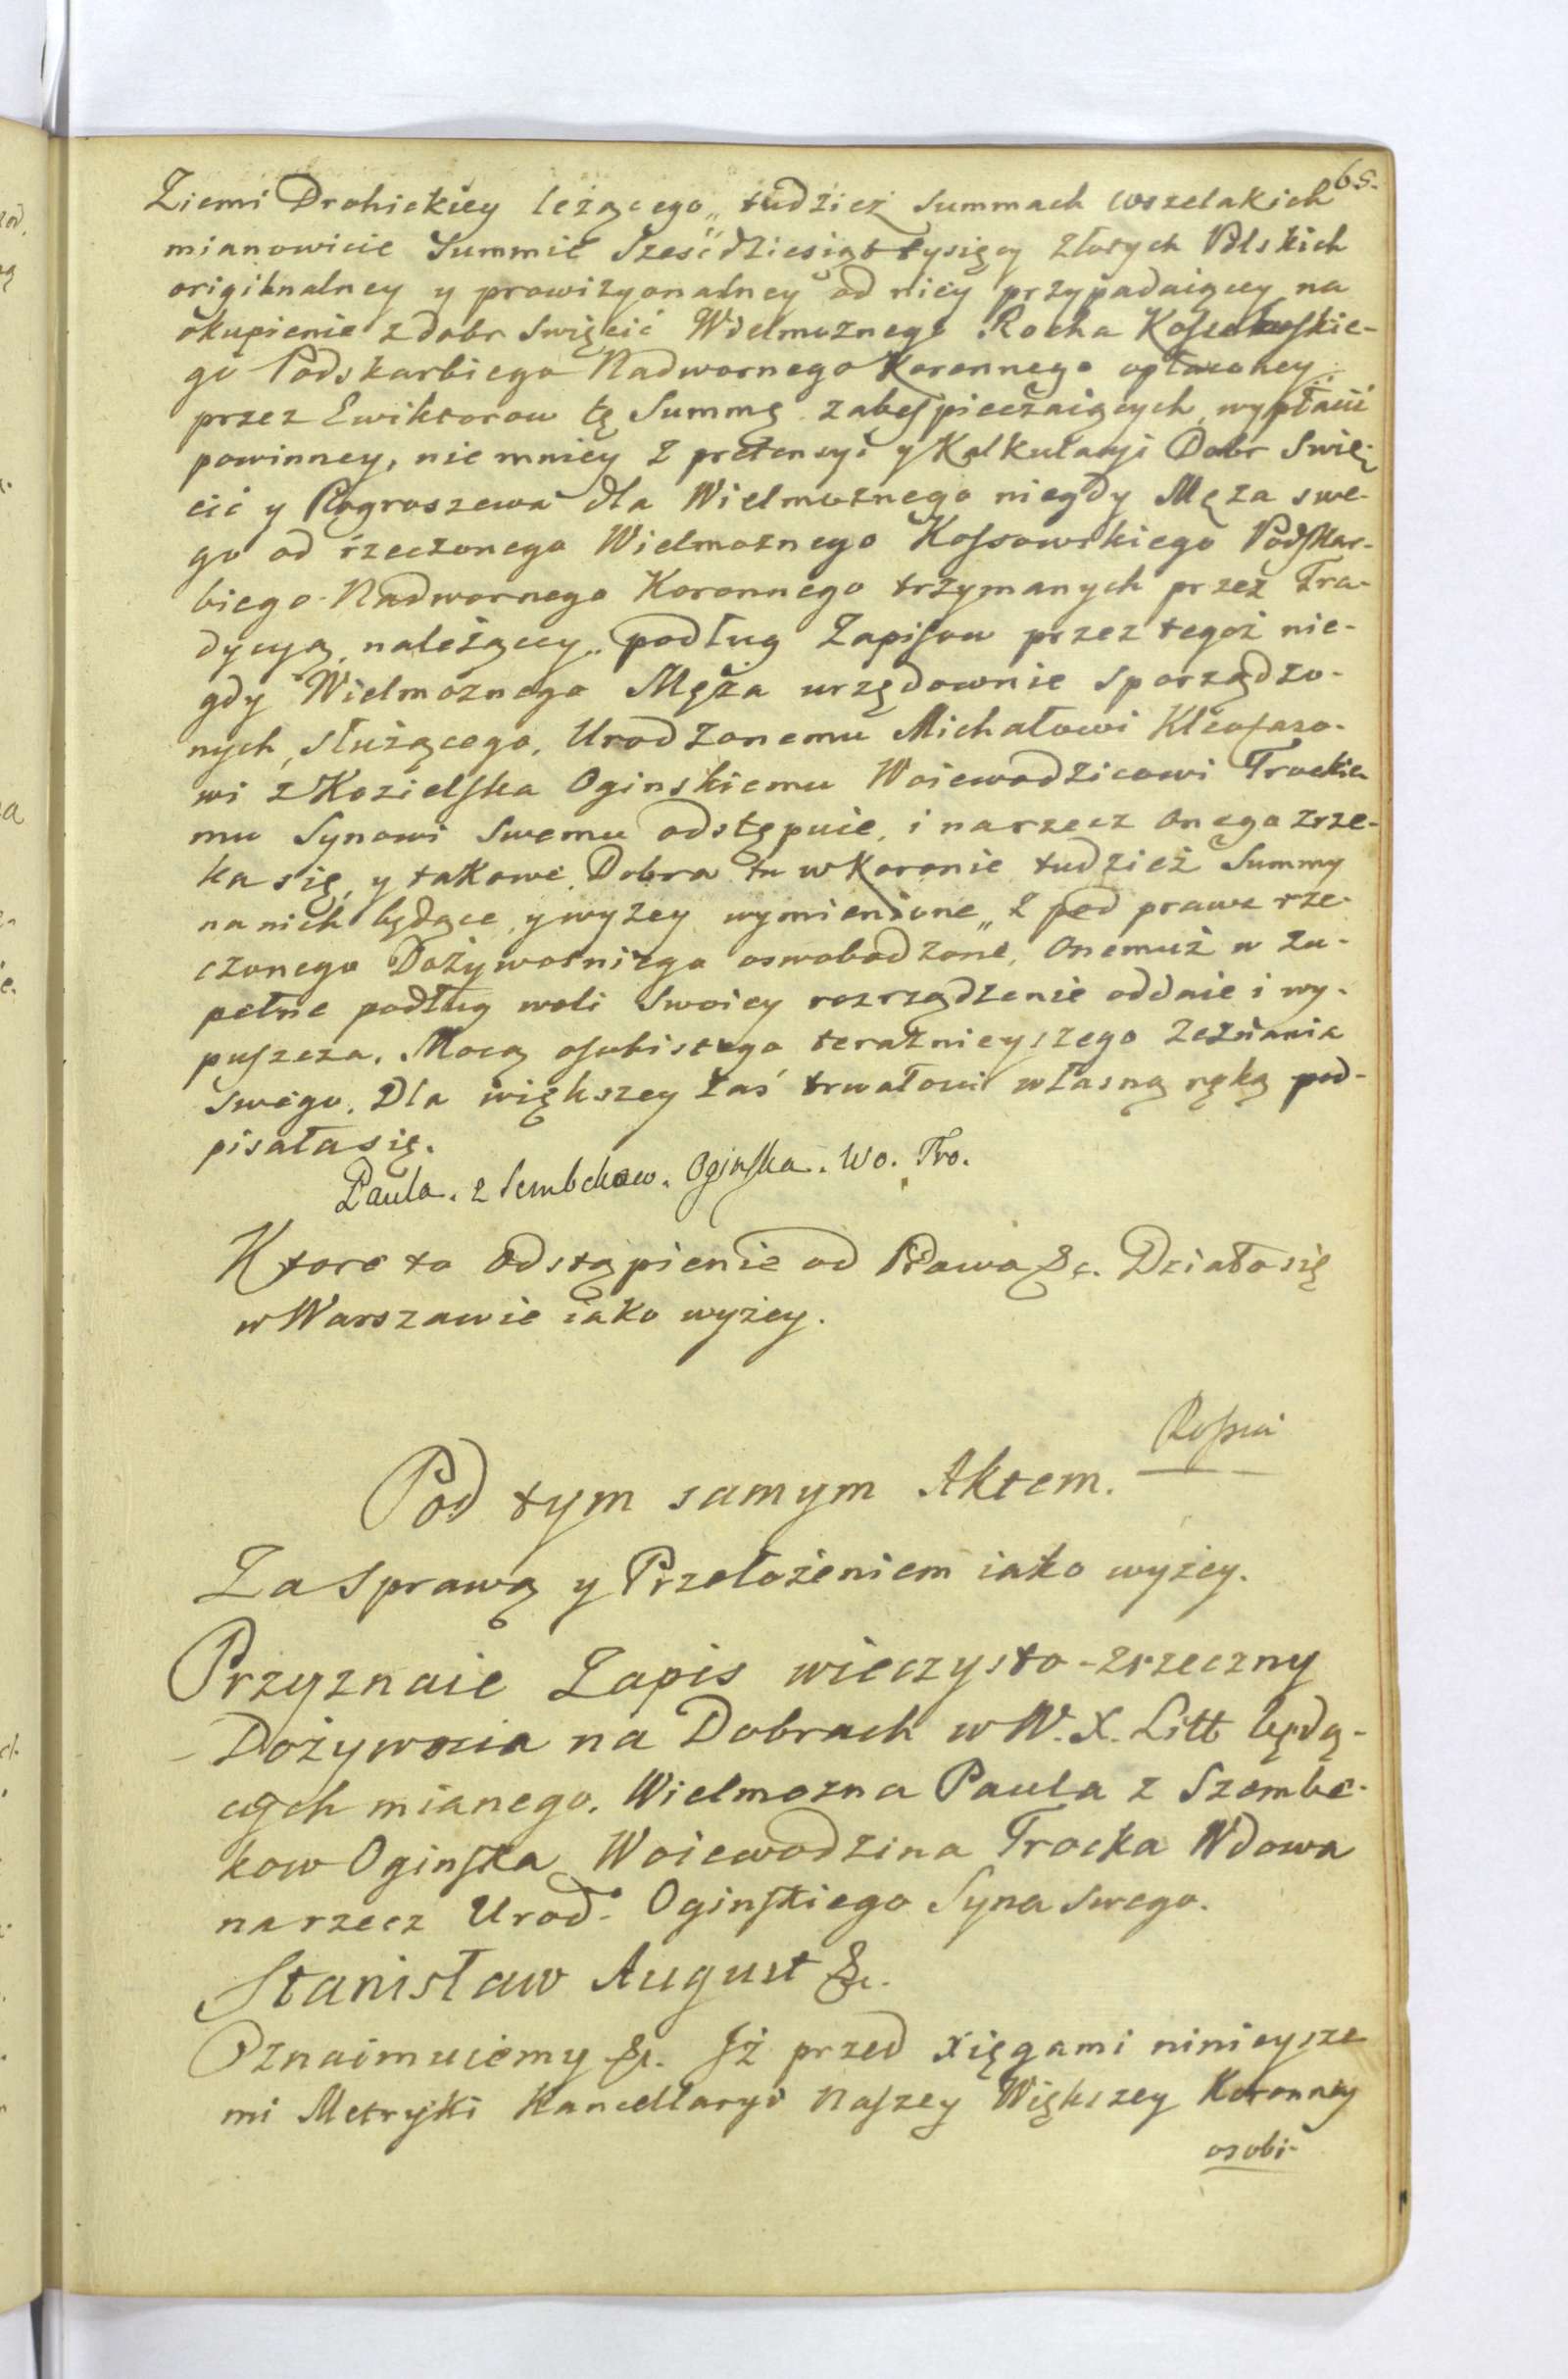 65.
Ziemi Drohickiey leżącego„ tudzież Summach wszelakich
mianowicie Summie Sześćdziesiąt tysięcy Złotych Polskich
origihnalney y prowizyonalney od niey przypadaiącey na
okupienie z dobr Swięcić Wielmoznego Rocha Kossowskie-
go Podskarbiego Nadwornego Koronnego opłaconey
przez Ewiktorow tę Summę zabespieczaiących, wypłacić
powinney, nie mniey z pretensyi y Kalkulacyi Dobr Swię-
cić y Rogroszewa dla Wielmoznego niegdy Męza swe-
go od rzeczonego Wielmoznego Kossowskiego Podskar-
biego Nadwornego Koronnego trzymanych przez Tra-
dycyą, należącey„ podług Zapisow przez tegoż nie-
gdy Wielmoznego Męża urzędownie sporządzo-
nych, służącego, Urodzonemu Michałowi Kleofaso-
wi z Kozielska Oginskiemu Woiewodzicowi Trockie-
mu Synowi Swemu odstępuie, i narzecz onego zrze-
ka się, y takowe Dobra tu w Koronie tudzież Summy
na nich będące, y wyzey wymienione„ z pod prawa rze-
czonego Dożywotniego oswobodzone, Onemuż w zu-
pełne podług woli Swoiey rozrządzenie oddaie i wy-
puszcza, Mocą osobistego teraznieyszego Zeznania
Swego. Dla większey zaś trwałości własną ręką pod-
pisała się.
Paula z Sembekow. Oginska. Wo. Tro.
Ktore to odstąpienie od Prawa &c. Działo się
w Warszawie iako wyżey.
Pod tym samym Aktem.
Za Sprawą y Przełożeniem iako wyżey.
Przyznaie Zapis wieczysto-zrzeczny
Dożywocia na Dobrach w W. X. Litt będą-
cych mianego. Wielmozna Paula z Szembe-
kow Oginska Woiewodzina Trocka Wdowa
na rzecz Urod. Oginskiego Syna swego.
Stanisław August &c.
Oznaimuiemy &c. Iż przed Xięgami ninieysze
mi Metryki Kancellaryi Naszey Większey Koronney
osobi-